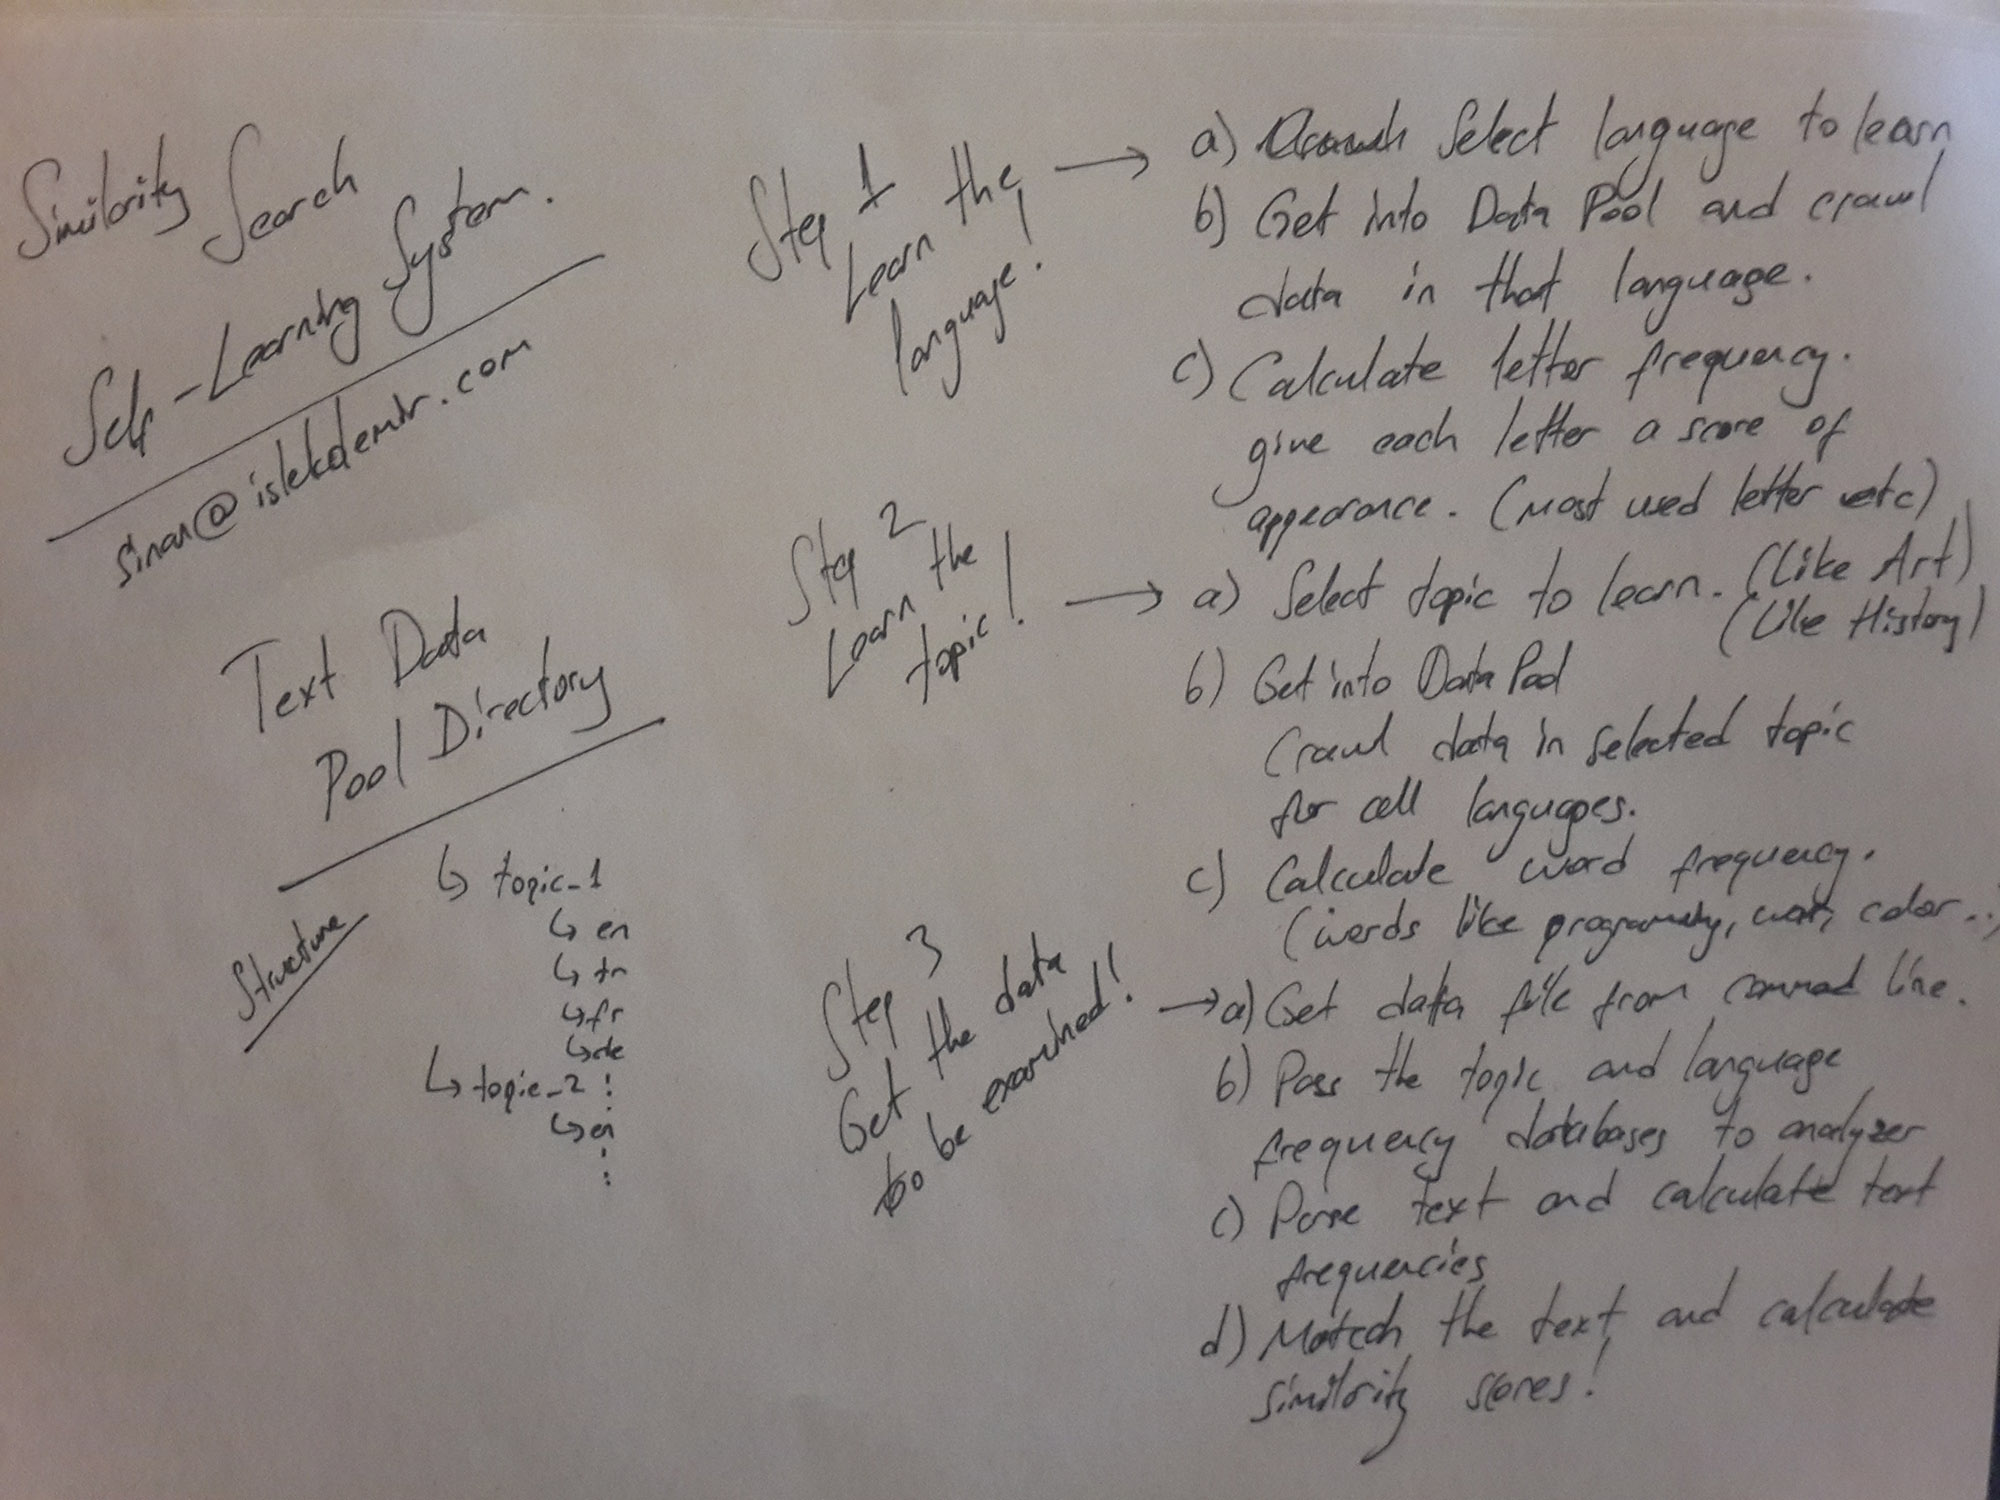 Similarity Search
Self-Learning System.
sinan@islekdemir.com
Text Data
Pool Directory
Structure
↳ topic_1
↳ en
↳ tr
↳ fr
↳ de
:
↳ topic_2
↳ en
:
Step 1
Learn the
language!
→ a) Select language to learn
b) Get into Data Pool and crawl
data in that language.
c) Calculate letter frequency.
give each letter a score of
appearance. (most used letter etc)
Step 2
Learn the
topic!
→ a) Select topic to learn. (Like Art)
(Like History)
b) Get into Data Pool
Crawl data in selected topic
for all languages.
c) Calculate word frequency.
(words like programming, war, color..)
Step 3
Get the data
to be examined!
→ a) Get data file from command line.
b) Pass the topic and language
frequency databases to analyzer
c) Parse text and calculate text
frequencies
d) Match the text and calculate
similarity scores!